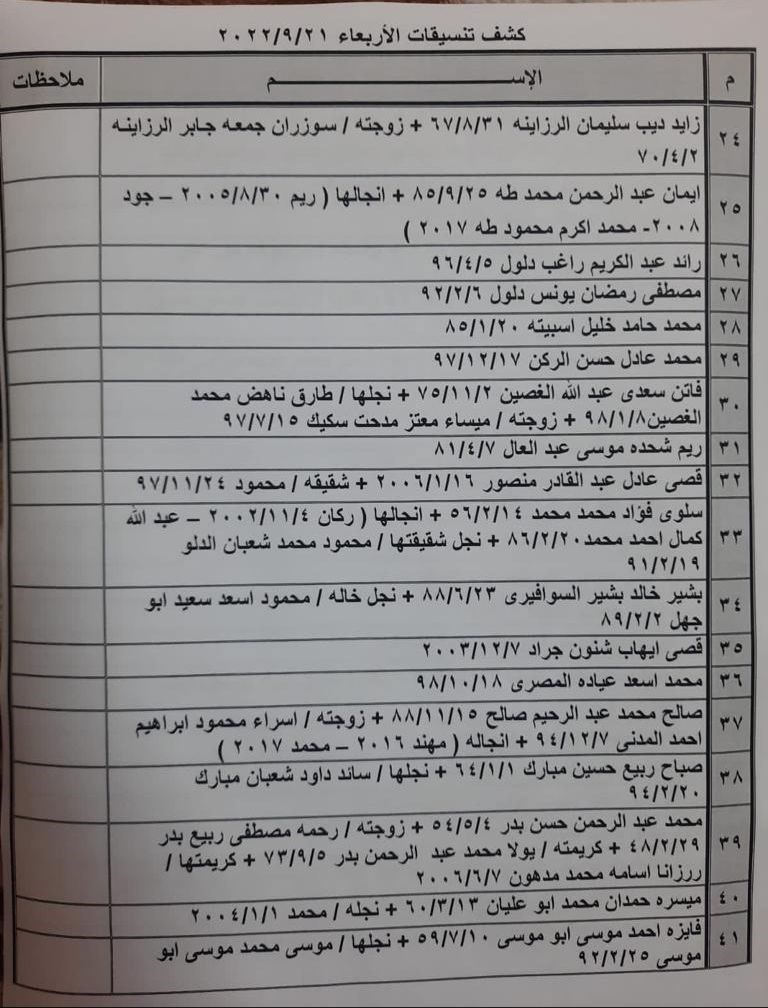 كشف تنسيقات الأربعاء ٢٠٢٢/٩/٢١
م الإســــــــــم ملاحظات
٢٤ زايد ديب سليمان الرزاينه ٦٧/٨/٣١ + زوجته / سوزران جمعه جابر الرزاينه
٧٠/٤/٢
٢٥ ايمان عبد الرحمن محمد طه ٨٥/٩/٢٥ + انجالها ( ريم ٢٠٠٥/٨/٣٠ – جود
٢٠٠٨- محمد اكرم محمود طه ٢٠١٧ )
٢٦ رائد عبد الكريم راغب دلول ٩٦/٤/٥
٢٧ مصطفى رمضان يونس دلول ٩٢/٢/٦
٢٨ محمد حامد خليل اسبيته ٨٥/١/٢٠
٢٩ محمد عادل حسن الركن ٩٧/١٢/١٧
٣٠ فاتن سعدى عبد الله الغصين ٧٥/١١/٢ + نجلها / طارق ناهض محمد
الغصين٩٨/١/٨ + زوجته / ميساء معتز مدحت سكيك ٩٧/٧/١٥
٣١ ريم شحده موسى عبد العال ٨١/٤/٧
٣٢ قصى عادل عبد القادر منصور ٢٠٠٦/١/١٦ + شقيقه / محمود ٩٧/١١/٢٤
٣٣ سلوى فؤاد محمد محمد ٥٦/٢/١٤ + انجالها ( ركان ٢٠٠٢/١١/٤ – عبد الله
كمال احمد محمد٨٦/٢/٢٠ + نجل شقيقتها / محمود محمد شعبان الدلو
٩١/٢/١٩
٣٤ بشير خالد بشير السوافيرى ٨٨/٦/٢٣ + نجل خاله / محمود اسعد سعيد ابو
جهل ٨٩/٢/٢
٣٥ قصى ايهاب شنون جراد ٢٠٠٣/١٢/٧
٣٦ محمد اسعد عياده المصرى ٩٨/١٠/١٨
٣٧ صالح محمد عبد الرحيم صالح ٨٨/١١/١٥ + زوجته / اسراء محمود ابراهيم
احمد المدنى ٩٤/١٢/٧ + انجاله ( مهند ٢٠١٦ – محمد ٢٠١٧ )
٣٨ صباح ربيع حسين مبارك ٦٤/١/١ + نجلها / سائد داود شعبان مبارك
٩٤/٢/٢٠
٣٩ محمد عبد الرحمن حسن بدر ٥٤/٥/٤ + زوجته / رحمه مصطفى ربيع بدر
٤٨/٢/٢٩ + كريمته / يولا محمد عبد الرحمن بدر ٧٣/٩/٥ + كريمتها /
ررزانا اسامه محمد مدهون ٢٠٠٦/٦/٧
٤٠ ميسره حمدان محمد ابو عليان ٦٠/٣/١٣ + نجله / محمد ٢٠٠٤/١/١
٤١ فايزه احمد موسى ابو موسى ٥٩/٧/١٠ + نجلها / موسى محمد موسى ابو
موسى ٩٢/٢/٢٥